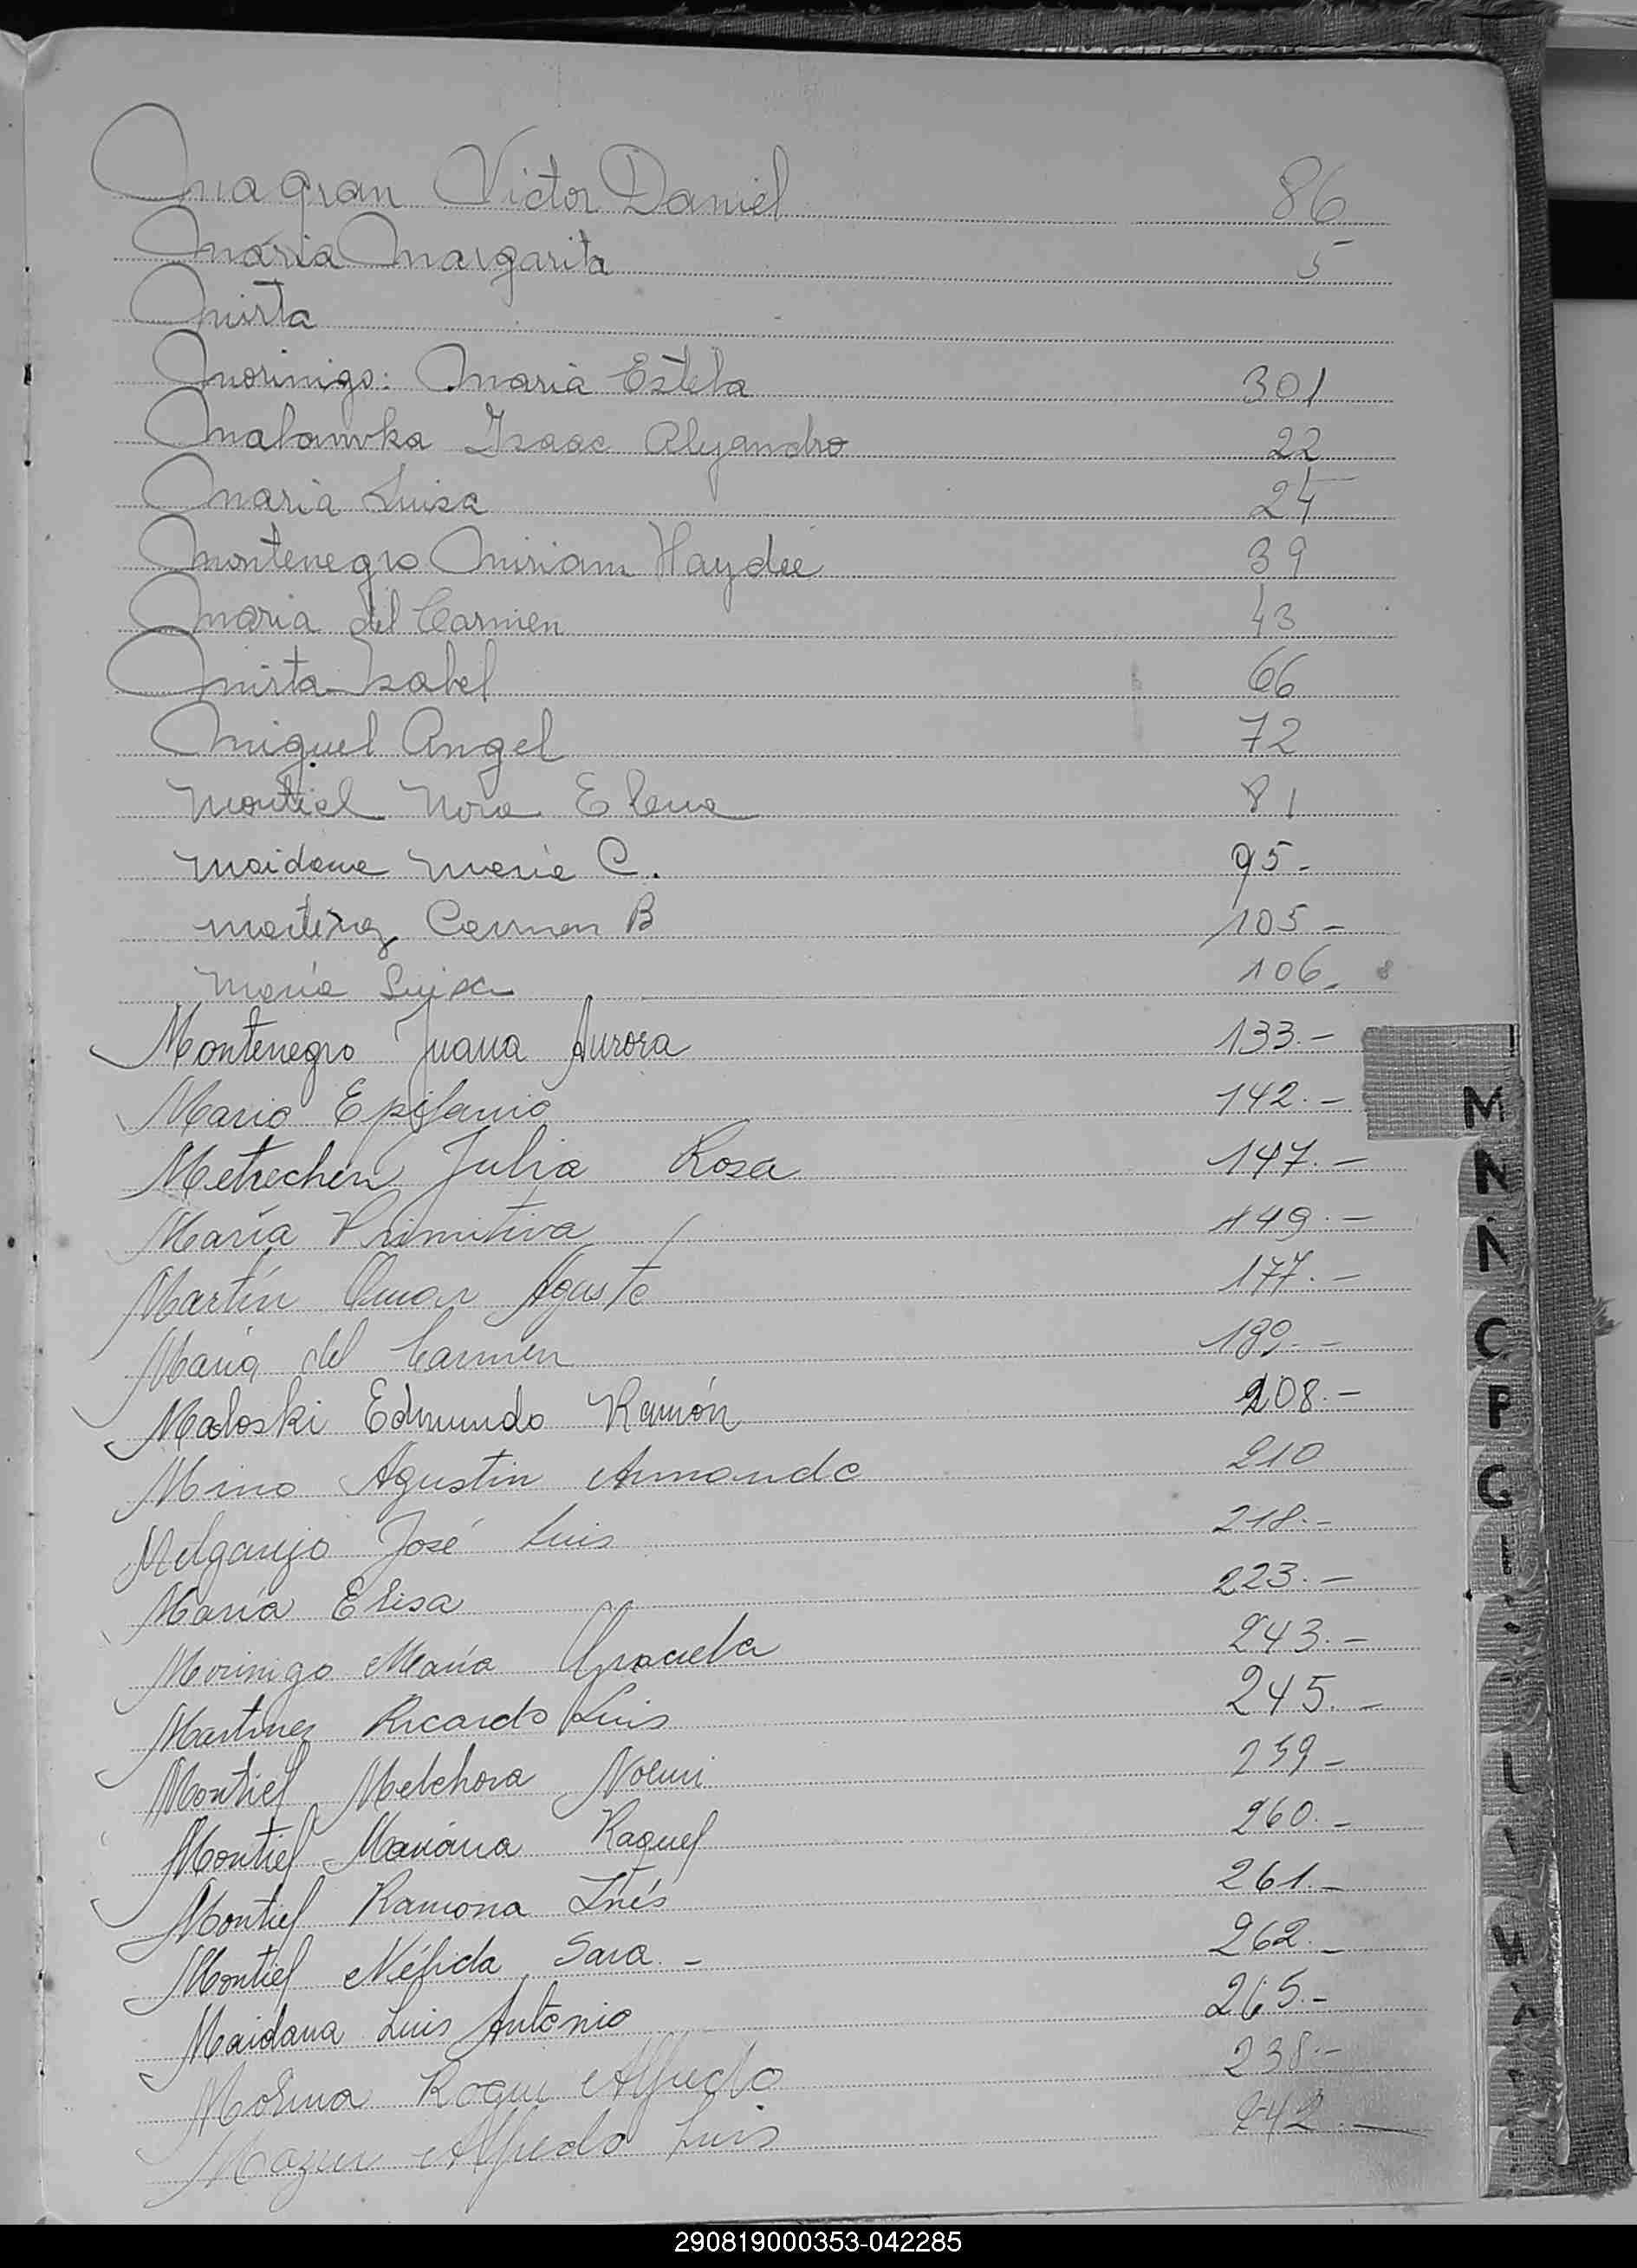 Magran Victor Daniel 86
Maria Margarita 5
Mirta
Morinigo: Maria Estela 301
Malanvka Isaac Alejandro 22
Maria Luisa 24
Montenegro Miriam Haydee 39
Maria del Carmen 43
Mirta Isabel 66
Miguel Angel 72
Montiel Nora Elena 81
Maidana Maria C. 95-
Martinez Carmen B 105-
María Luisa 106-
Montenegro Juana Aurora 133.-
Mario Epifanio 142.-
Metrechen Julia Rosa 147.-
María Primitiva 149.-
Martín Omar 177.-
María del Carmen 189.-
Maloski Edmundo Ramón 208.-
Mino Agustin Armando 210
Melgarejo José Luis 218.-
María Elisa 223.-
Morinigo María Graciela 243.-
Martinez Ricardo Luis 245.-
Montiel Melchora Noemi 259-
Montiel Mariana Raquel 260.-
Montiel Ramona Inés 261.-
Montiel Nélida Sara.- 262.-
Maidana Luis Antonio 265.-
Molina Roque Alfredo 238.-
Mazur Alfredo Luis 242.-
M
N
Ñ
O
P
290819000353-042285